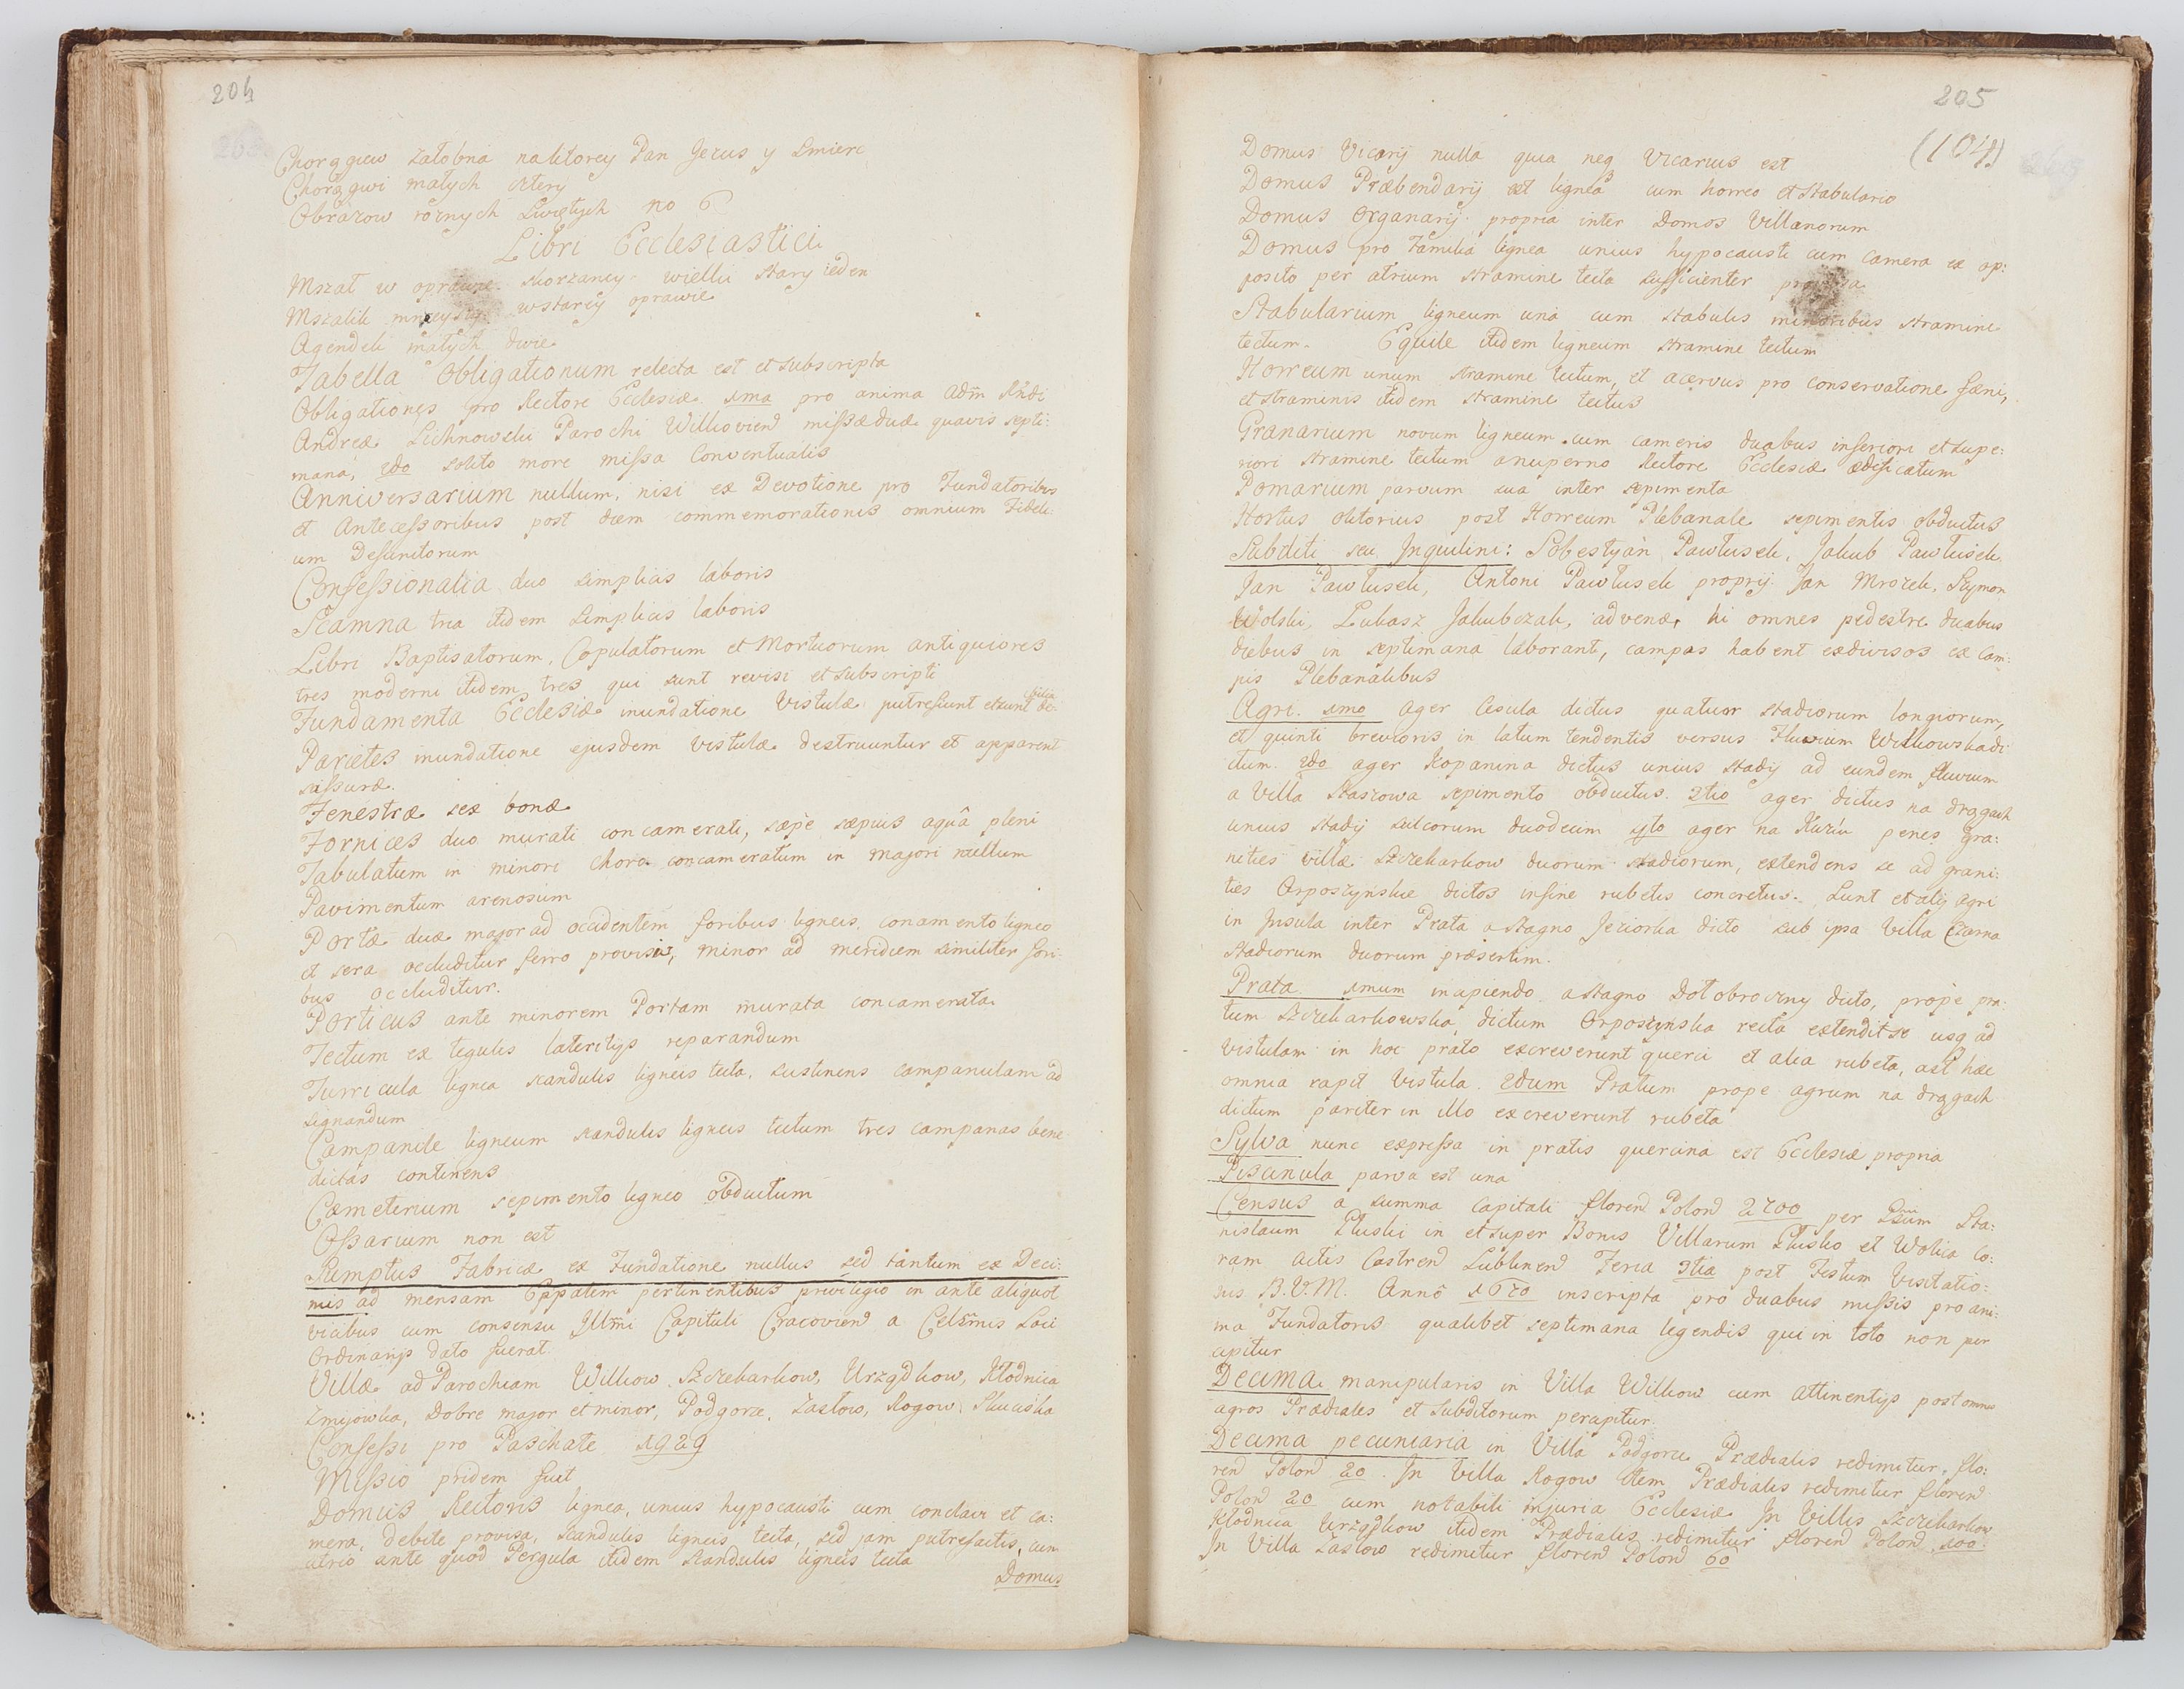 204
Chorągiew załobna naktorey Pan Jezus y Smierc
Chorągwi małych cztery
Obrazow roznych Swiętych no 6
Libri Ecclesiastici
Mszał w oprawie skorzaney wielki stary ieden
Mszalik mnieyszy wstarey oprawie
Agendeli małych dwie
Tabella Obligationum relecta est et subscripta
Obligationes pro Rectore Ecclesiæ 1ma pro anima Adm Rndi
Andreæ Lichnowski Parochi Wilkovien missæ duæ quavis septi:
mana, 2do solito more missa Conventualis
Anniversarium nullum, nisi ex Devotione pro Fundatoribus
et Antecessoribus post diem commemorationis omnium Fideli:
um Defunctorum
Confessionalia duo simplicis laboris
Scamna tria itidem simplicis laboris
Libri Baptisatorum, Copulatorum et Mortuorum antiquiores
tres moderni itidem tres qui sunt revisi et subscripti
Fundamenta Ecclesiæ inundatione Vistulæ putrescunt etsunt de-
Parietes inundatione ejusdem vistulæ destruuntur et apparent
scissuræ.
Fenestræ sex bonæ
Fornices duo murati concamerati, sæpe sæpius aquâ pleni
Tabulatum in minori choro concameratum in majori nullum
Pavimentum arenosum
Portæ duæ major ad occidentem foribus ligneis, conamento ligneo
et sera occluditur ferro provisis, minor ad meridiem similiter fori-
bus occluditur.
Porticus ante minorem Portam murata concamerata
Tectum ex tegulis lateritijs reparandum
Turricula lignea scandulis ligneis tecta, sustinens campanulam ad
signandum
Campanile ligneum scandulis ligneis tectum tres campanas bene
dictas continens
Cæmeterium sepimento ligneo obductum
Ossarium non est
Sumptus Fabricæ ex Fundatione nullus sed tantum ex Deci:
mis ad mensam Eppalem pertinentibus privilegio in ante aliquot
vicibus cum consensu Illmi Capituli Cracovien a Celsmis Loci
Ordinarijs dato fuerat.
Villæ ad Parochiam Wilkow, Szczekarkow, Urządkow, Kłodnica
Zmijowka, Dobre major et minor, Podgorze, Zastow, Rogow, Skuciska
Confessi pro Paschate 1929
Missio pridem fuit
Domus Rectoris lignea, unius hypocausti cum conclavi et ca:
mera, debite provisa, scandulis ligneis tecta, sed jam putrefactis, cum
atrio ante quod Pergula itidem scandulis ligneis tecta
Domus
205
(104)
Domus Vicarij nulla quia neq Vicarius est
Domus Præbendarij est lignea cum horreo et stabulario
Domus Organarij propria inter Domos Villanorum
Domus pro Familia lignea unius hypocausti cum camera ex op:
posito per atrium stramine tecta sufficienter provisa
Stabularium ligneum una cum stabulis minoribus stramine
tectum. Equile itidem ligneum stramine tectum
Horreum unum stramine tectum, et acervus pro conservatione fæni,
et straminis itidem stramine tectus
Granarium novum ligneum cum cameris duabus inferiori et supe:
riori stramine tectum a nuperno Rectore Ecclesiæ ædificatum
Pomarium parvum sua inter sepimenta
Hortus olitorius post Horreum Plebanale sepimentis obductus
Subditi seu Inquilini: Sobestyàn Pawłusek, Jakub Pawłusek
Jan Pawłusek, Antoni Pawłusek proprij Jan Mrozek, Szymon
Wolski, Łukasz Jakubczak, advenæ, hi omnes pedestre duabus
diebus in septimana laborant, campos habent exdivisos ex cam:
pis Plebanalibus
Agri. 1mo ager Cesula dictus quatuor stadiorum longiorum,
et quinti brevioris in latum tendentis versus Fluvium Wilkowska di
ctum. 2do ager Kopanina dictus unius stadij ad eundem fluvium
a Villa Staszowa sepimento obductus. 3tio ager dictus na dragach
unius stadij sulcorum duodecim 4to ager na Kuźni penes gra:
nicies villæ Szczekarkow duorum stadiorum, extendens se ad grani:
ties Orposzynskie dictos in fine rubetis concretus. Sunt et alij agri
in Insula inter Prata a stagno Jeziorka dicto sub ipsa Villa Czarna
stadiorum duorum præsertim.
Prata 1mum incipiendo a stagno Dotobroczny dicto, prope pra:
tum Szczekarkowska, dictum Orposzynska recta extendit se usq ad
vistulam in hoc prato excreverunt querci et alia rubeta, ast hæc
omnia rapit Vistula. 2dum Pratum prope agrum na dragach
dictum pariter in illo excreverunt rubeta
Sylva nunc expressa in pratis quercina est Ecclesiæ propria
Piscinula parva est una
Census a summa capitali floren Polon 2700 per Dnum Sta:
nislaum Kluski in et super Bonis Villarum Kłusko et Wolica co:
ram actis Castren Lublinen Feria 3tia post Festum Visitatio:
nis B.V.M. Anno 1670 inscripta pro duabus missis pro ani:
ma Fundatoris qualibet septimana legendis qui in toto non per
cipitur
Decima manipularis in Villa Wilkow cum attinentijs post omnes
agros Prædiales et Subditorum percipitur.
Decima pecuniaria in Villa Podgorze Prædialis redimitur flo:
ren Polon 20. In Villa Rogow item Prædialis redimitur floren
Polon 20 cum notabili injuria Ecclesiæ In Villis Szczekarkow
Kłodnica Urządkow itidem Prædialis redimitur floren Polon 100.
In Villa Zastow redimitur floren Polon 60